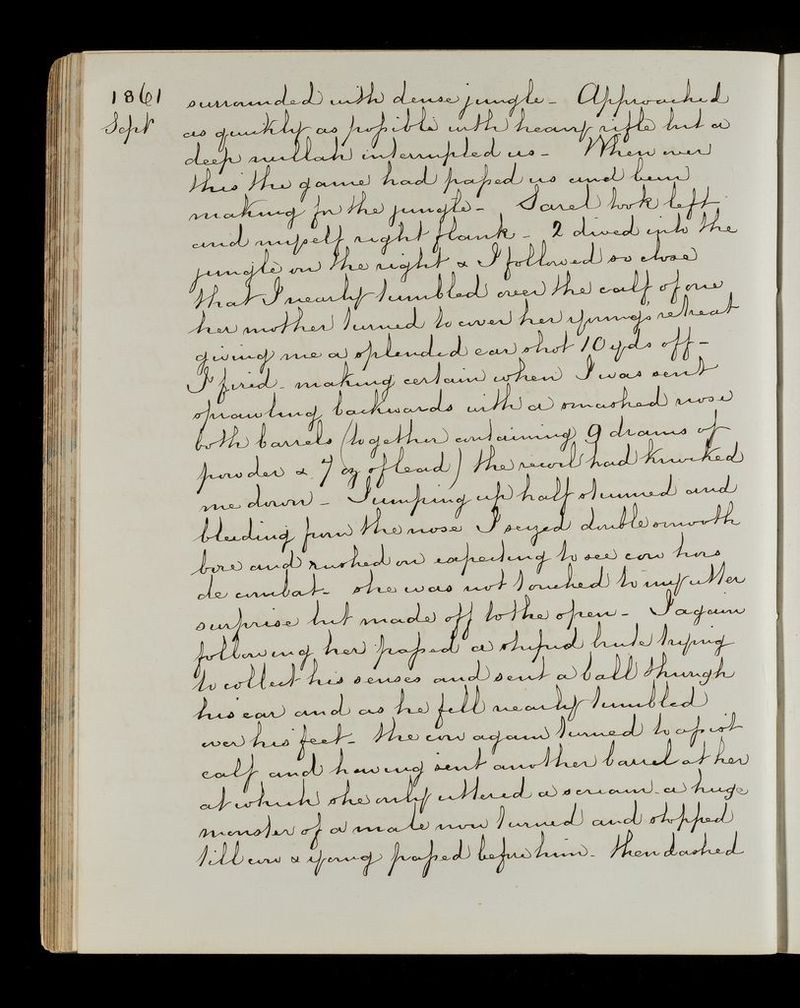 1861
Sept
surrounded with dense jungle - Approached
as quickly as possible with heavy rifle but a
deep nullah interrupted us - When over
this the game had passed us and been
making for the jungle - Sarel took left
and myself right flank - 2 dived into the
jungle on the right & I followed so close
that I nearly tumbled over the calf of one
her mother turned to cover her young's retreat
giving me a splendid ear shot 10 yds off -
I fired - making certain when I was sent
sprawling backwards with a smashed nose
both barrels (together containing 9 drams of
powder & 7 oz of lead) the recoil had knocked
me down - Jumping up half stunned and
bleeding from the nose I seized double smooth
bore and rushed on expecting to see cow hors
de combat - she was not touched to my utter
surprise but made off to the open - I again
following her passed a stupid brute trying
to collect his senses and sent a ball through
his ear and as he fell nearly tumbled
over his feet - the cow again turned to assist
calf and having sent another barrel at her
at which she only uttered a scream - a huge
monster of a male now turned and stopped
till cow & young passed before him - then dashed